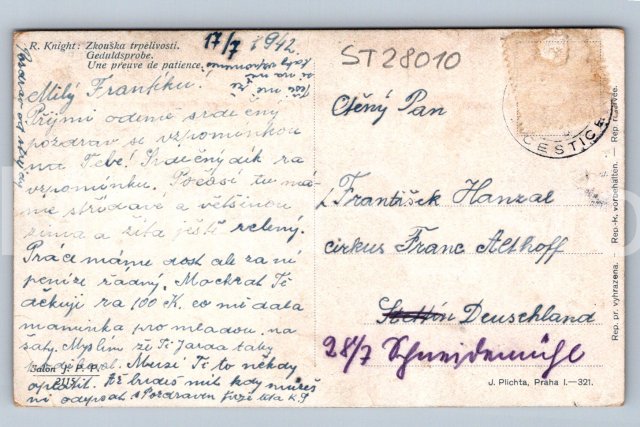 R. Knight: Zkouška trpělivosti.
Geduldsprobe.
Une preuve de patience.
17/7 1942.
Milý Frantíku!
Přijmi odemě srdečný
pozdrav se vzpomínkou
na Tebe! Srdečný dík za
vzpomínku. Počasí tu má-
me střídavé a většinou
zima a žita ještě zelený.
Práci máme dost ale za ní
peníze řádný. Mockrát Ti
děkuji za 100 K, co mě dala
maminka pro mladou na
šaty. Myslím že Ti Jarda taky
Musí Ti to někdy
oplatit. Až budeš mít kdy můžeš
mi odepsat s Pozdravem
Salon J. P. P.
ST28010
Ctěný Pan
František Hanzal
cirkus Franc Althoff
Stettin Deuschland
28/7 Schneidemühl
ČESTICE
J. Plichta, Praha I.—321.
Rep. př. vyhrazena. — Rep.-R. vorbehalten. — Rep. réservée.